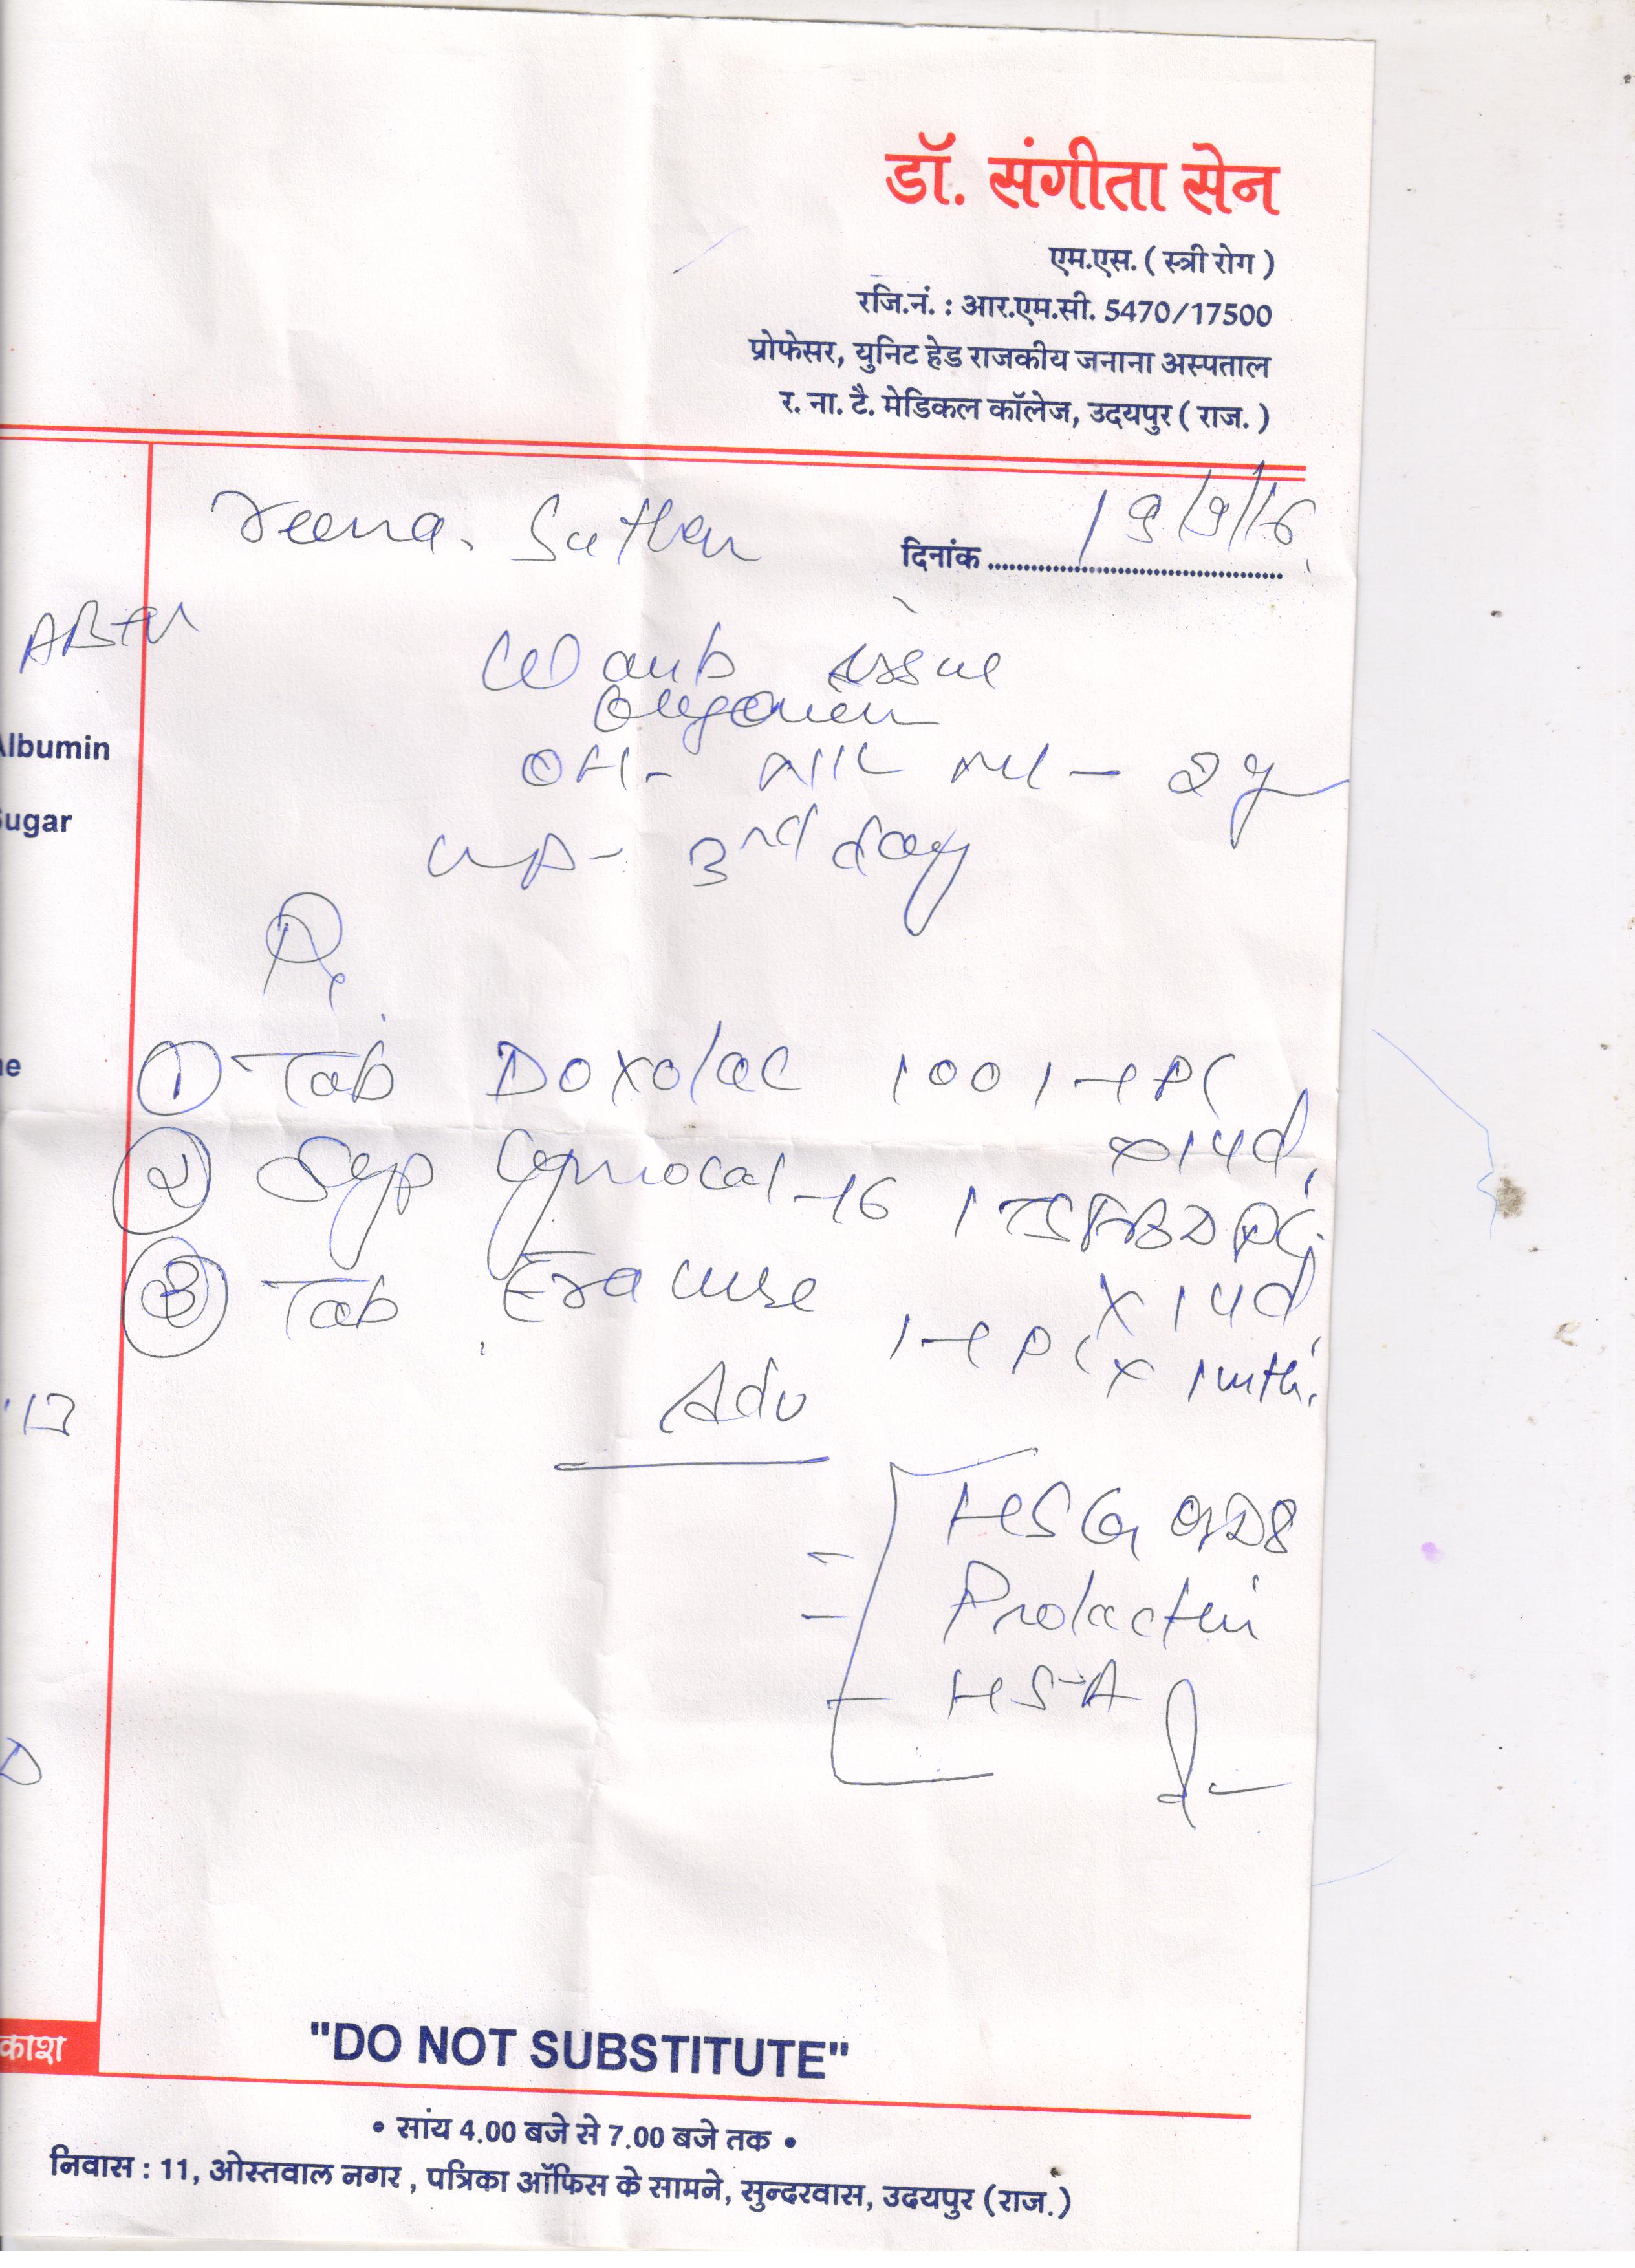 डॉ. संगीता सेन
एम.एस. ( स्त्री रोग )
रजि.नं. : आर.एम.सी. 5470/17500
प्रोफेसर, युनिट हेड राजकीय जनाना अस्पताल
र. ना. टै. मेडिकल कॉलेज, उदयपुर ( राज. )
Veena. Suthar
दिनांक
wants issue
OH- Nil ML - 2 y
LMP- 3rd day
Albumin
Sugar
Rx
① Tab Doxolac 100 1-1 PC
x14d
② Syp Gynocal-16 1 TSF BD PC
x14d
③ Tab
1-1 PC x 1 mth
Adv
HSG
Prolactin
HSA
काश
"DO NOT SUBSTITUTE"
• सांय 4.00 बजे से 7.00 बजे तक •
निवास : 11, ओस्तवाल नगर , पत्रिका ऑफिस के सामने, सुन्दरवास, उदयपुर (राज.)